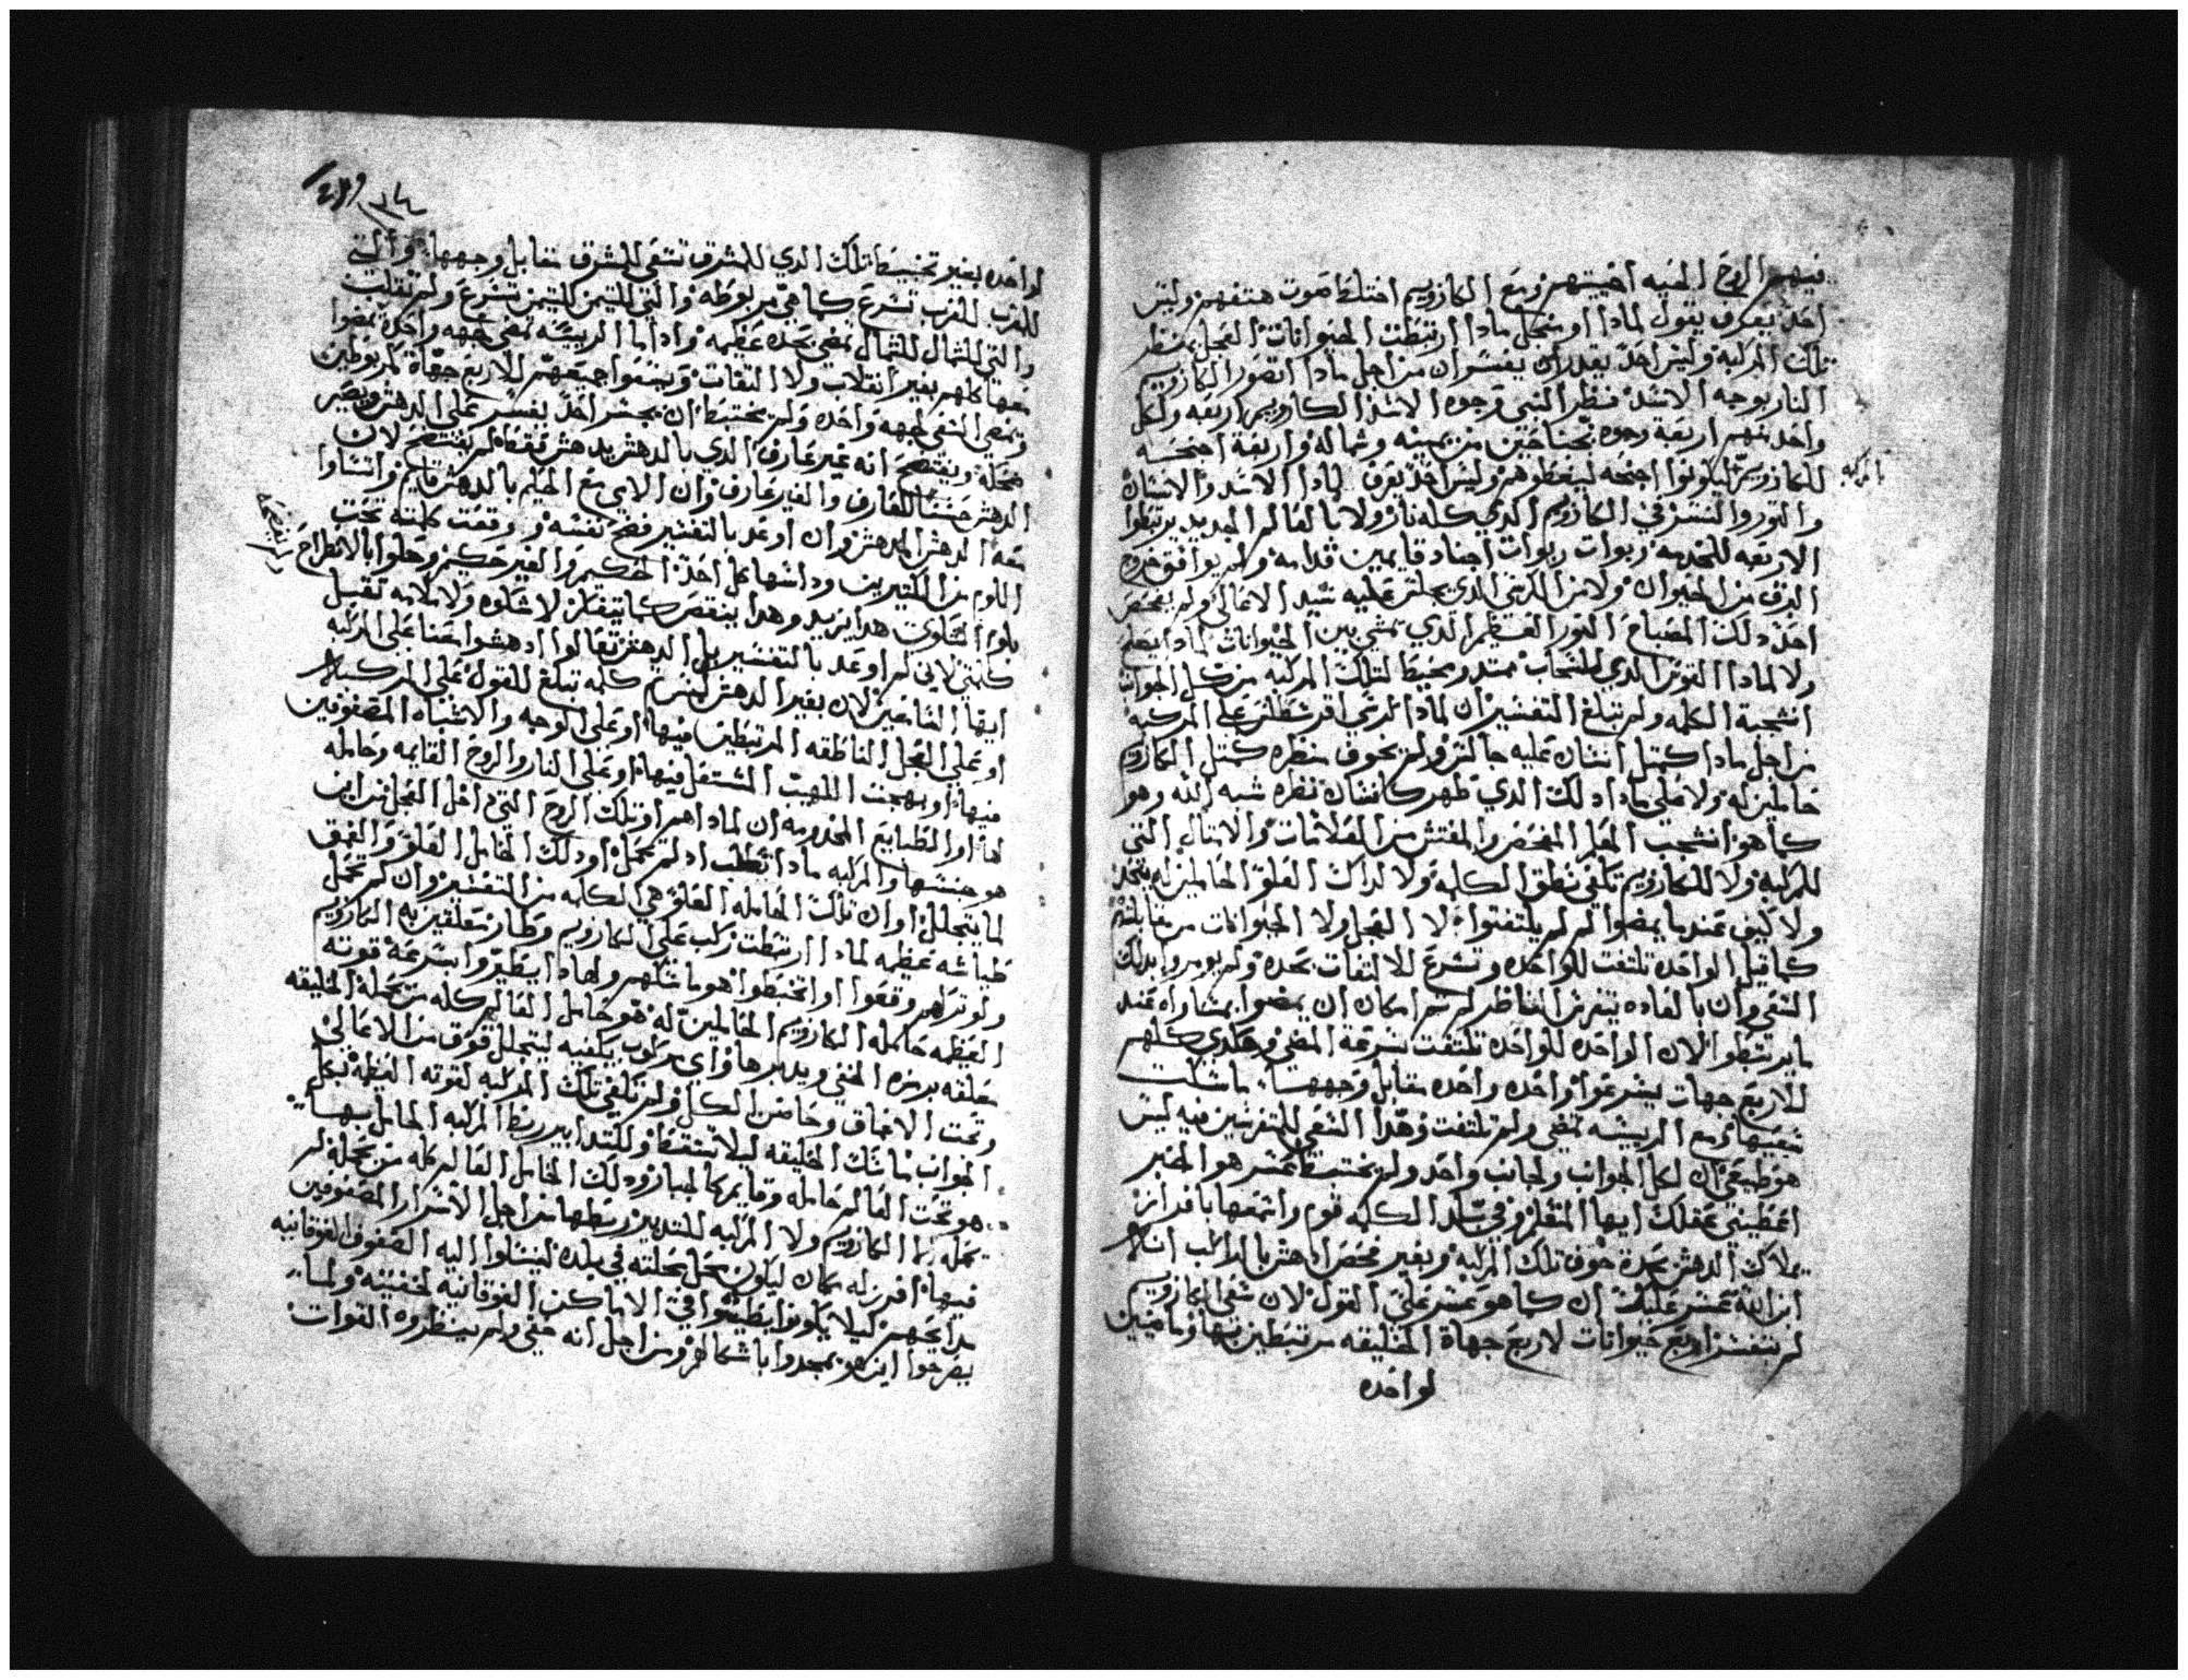 فيهم الروح الحيه احييتهم ومع الكاروبيم اختلط صوت هتفهم وليس
احد يعرف يقول لماذا او منجل ماذا ارتبطت الحيوانات العجل بمنظر
تلك المركبه وليس احد يقدر ان يفسر ان من اجل ماذا اتصور الكاروبيم
النار بوجه الاسد فنظر النبي وجوه الاسد الكاروبيم اربعه ولكل
واحد منهم اربعة وجوه بجناحين من يمينه وشماله واربعة اجنحه
للكاروبيم ليكونوا اجنحه ليغطوهم وليس احد يعرف لماذا الاسد والانسان
والتور والنسر في الكاروبيم الذي كله نار ولا بالعالم الجديد يرتبطوا
الاربعه للخدمه ربوات ربوات اجناد قايمين قدامه ولم يوافق خروج
البرق من الحيوان ولا من الكرسي الذي يجلس عليه سيد الاعالي ولم يفحص
احد ذلك المصباح النور العظيم الذي يمشي بين الحيوانات لماذا يعلم
ولا لماذا القوس الذي للسحاب ممتد ومحيط لتلك المركبه من كل الجوانب
انسجبة الكلمه ولم تبلغ التفسير ان لماذا تدعي اقرسطلس علي المركبه
من اجل ماذا كمتل انسان عليه جالس ولم يخوف منظره كمتل الكاروبيم
حاملين له ولا علي ماذا ذلك الذي ظهر كانسان نظره شبه الله وهو
كما هو انسجب العالم المفحص والمفتش من العلامات والامتال التي
للمركبه ولا للكاروبيم تكفي نطق الكلمه ولا لذاك العلو الحاملين له يتحد
ولا كيف عندما يمضوا لم لم يلتفتوا لا العجل ولا الحيوانات من مقابلتهم
كما قيل الواحده تلتفت للواحده وتسرع للالتفات بحده ولم يومروا بذلك
السعي وان بالعاده يتفرس الناظر لم تم امكان ان يمضوا بمشاراه عند
ما يرتبطوا الان الواحده للواحده تلتفت بسرعة المضي وهكدي كلهم
للاربع جهات يسرعوا واحده واحده مقابل وجهها ماسكت
سعيها ومع الريشه تمضي ولم تلتفت وهذا السعي للمتفرسين فيه ليس
هو طبيعي ان لكل الجوانب ولجانب واحد ولم يختبط عسر هو الخبر
اعطيني عقلك ايها المتعلم وفي بلد الكلمه قوم واسمعها بافراز
يملاك الدهش بحدة خوف تلك المركبه وبغير فحص ادهش بالراكب انه
ابن الله عسر عليك ان كما هو عسر علي القول لان سعي الكاروبيم
لم يتفسر اربع حيوانات لاربع جهاة الخليقه مرتبطين بها وماضيين
لواحده
بالمركبه
لواحده بغير تخبيط تلك الذي للمشرق تسعي للمشرق مقابل وجهها والتي
للغرب للغرب تسرع كما هي مربوطه والتي لليتمن لليتمن تسرع ولم تنقلب
والتي للشمال للشمال تمضي بحده عظيمه واذا ما الريسه تمضي لجهه واحده تمضوا
معها كلهم بغير انقلاب ولا التفات ويتبعوا جميعهم للاربع جهاة لمربوطين
وتمضي السعي لجهه واحده ولم يختبط ان يجسر احد يفسر علي الدهش ويصير
ضحكه ويفتضح انه غير عارف الذي بالدهش يدهش فقط لم يفتضح لان
الدهش حسنا للعارف والغير عارف وان الابي مع الحليم بالدهش قايم وانتساوا
معه الدهش المدهش وان اوعد بالتفسير فضح نفسه ووقعت كلمته تحت
اللوم من الكتيرين وداسها كل احد الحكيم والغير حكيم وحلوا بالاطراح
باوا التحاوي هذا يزيد وهذا ينقص كما يتفكر لا شكاوه ولا ملامه تقبل
كلمتي لاني لم اوعد بالتفسير بل الدهش تعالوا ادهشوا معنا علي المركبه
ايها السامعين لان بغير الدهش ليس تم كلمه تبلغ للقول علي المركبه
او علي العجل الناطقه المرتبطين فيها او علي الوجه والاشباه المصفوفين
فيها او بهجت اللهيب المشتعل فيها او علي النار والروح القايمه وحامله
لها او الطبايع المخدومه ان لماذا هم او تلك الروح التي داخل العجل من اين
هو جنسها والمركبه ماذا تطلب اذ لم تحمل او ذلك الحامل العلو والعمق
لما يتجلل او ان تلك الحامله العلو هي الكلمه من التفسير وان لم تحمل
طياشه عظيمه لماذا ارتبطت ركب علي الكاروبيم وطار متعلقين به الكاروبيم
ولو تراهم وقعوا او اختبطوا هو ماسكهم ولماذا يطيروا بسرعة قوته
العظيمه حامله الكاروبيم الحاملين له هو حامل العالم كله من بحملة الخليقه
معلقه برمزه الخفي ويدبرها واي مركوب يكفيه ليتجلل فوق من الاعالي
وتحت الاعماق وحاضن الكل ولم تكفي تلك المركبه لقوته العظيمه بكل
الجوانب ماسك الخليقه ليلا تسقط وللتدابير ربط المركبه الحامل بها
هو تحت العالم حامله وقايم كالجبار وذلك الحامل العالم كله من بحمله لم
تحمله لا الكاروبيم ولا المركبه للتدبير ربطها من اجل الاسرار المصفوفين
فيها افرز له مكان ليكون محل بحلته في بلده ليتساوا اليه الصفوف الفوقانيه
مدايحهم كيلا يكونوا بطيئوا في الاماكن الفوقانيه لخفيته ولما
يصرخوا اين هو يمجدوا باشكالهم ومن اجل انه خفي ولم ينظروه القوات